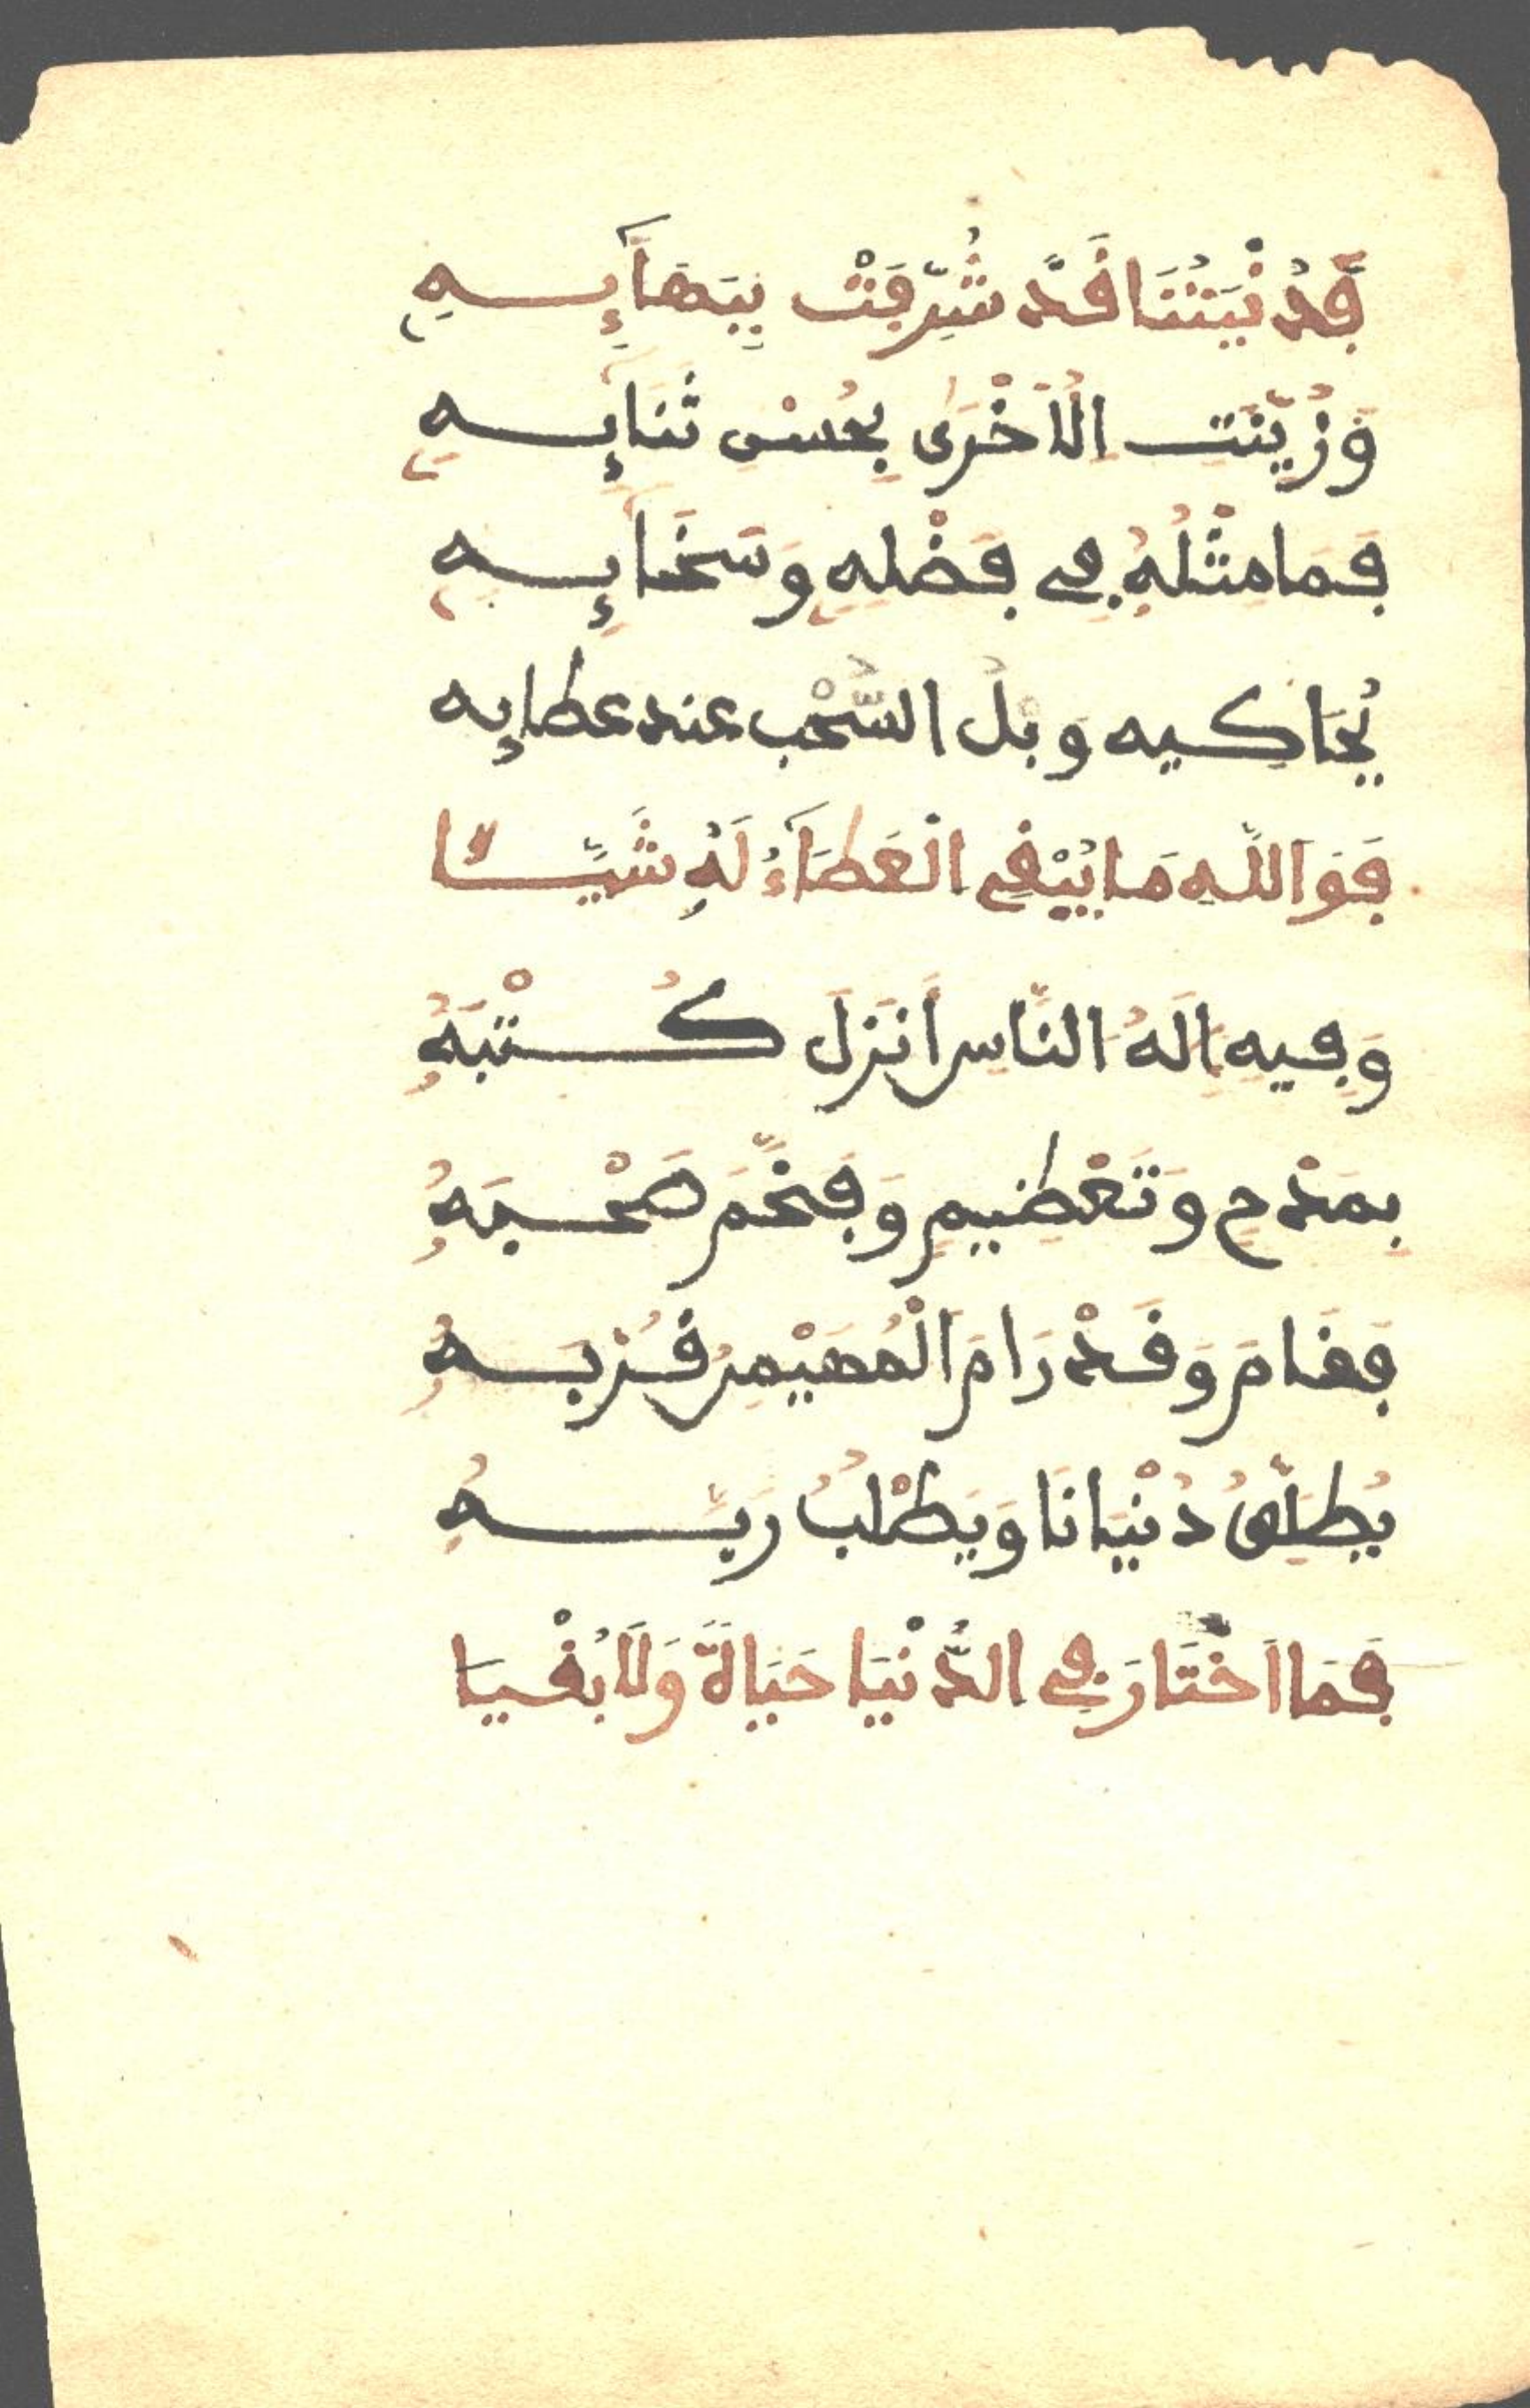 فَدُنْيَتُنَا قَدْ شُرِّفَتْ بِبَهَآئِهِ
وَزُيِّنَتِ الُاخْرَى بِحُسْنِ ثَنَائِهِ
فَمَا مِثْلُهُ فِي فَضْلِهِ وَسَخَائِهِ
يُحَاكِيه وبْلُ السُّحْب عند عطائه
فَوَاللَّهِ مَا يُبْقِي الْعَطَآءُ لَهُ شَيْئًا
وَفِيهِ اِلَهُ النَّاسِ أَنْزَلَ كُتْبَهُ
بِمَدْحٍ وَتَعْظِيمٍ وَفَخَّمَ صَحْبَهُ
فَقَامَ وَقَدْ رَامَ الْمُهَيْمِنُ قُرْبَهُ
يُطَلِّقُ دُنْيَانَا وَيَطْلُبُ رَبَّهُ
فَمَا اخْتَارَ فِي الدُّنْيَا حَيَاةً وَلَا بُقْيَا